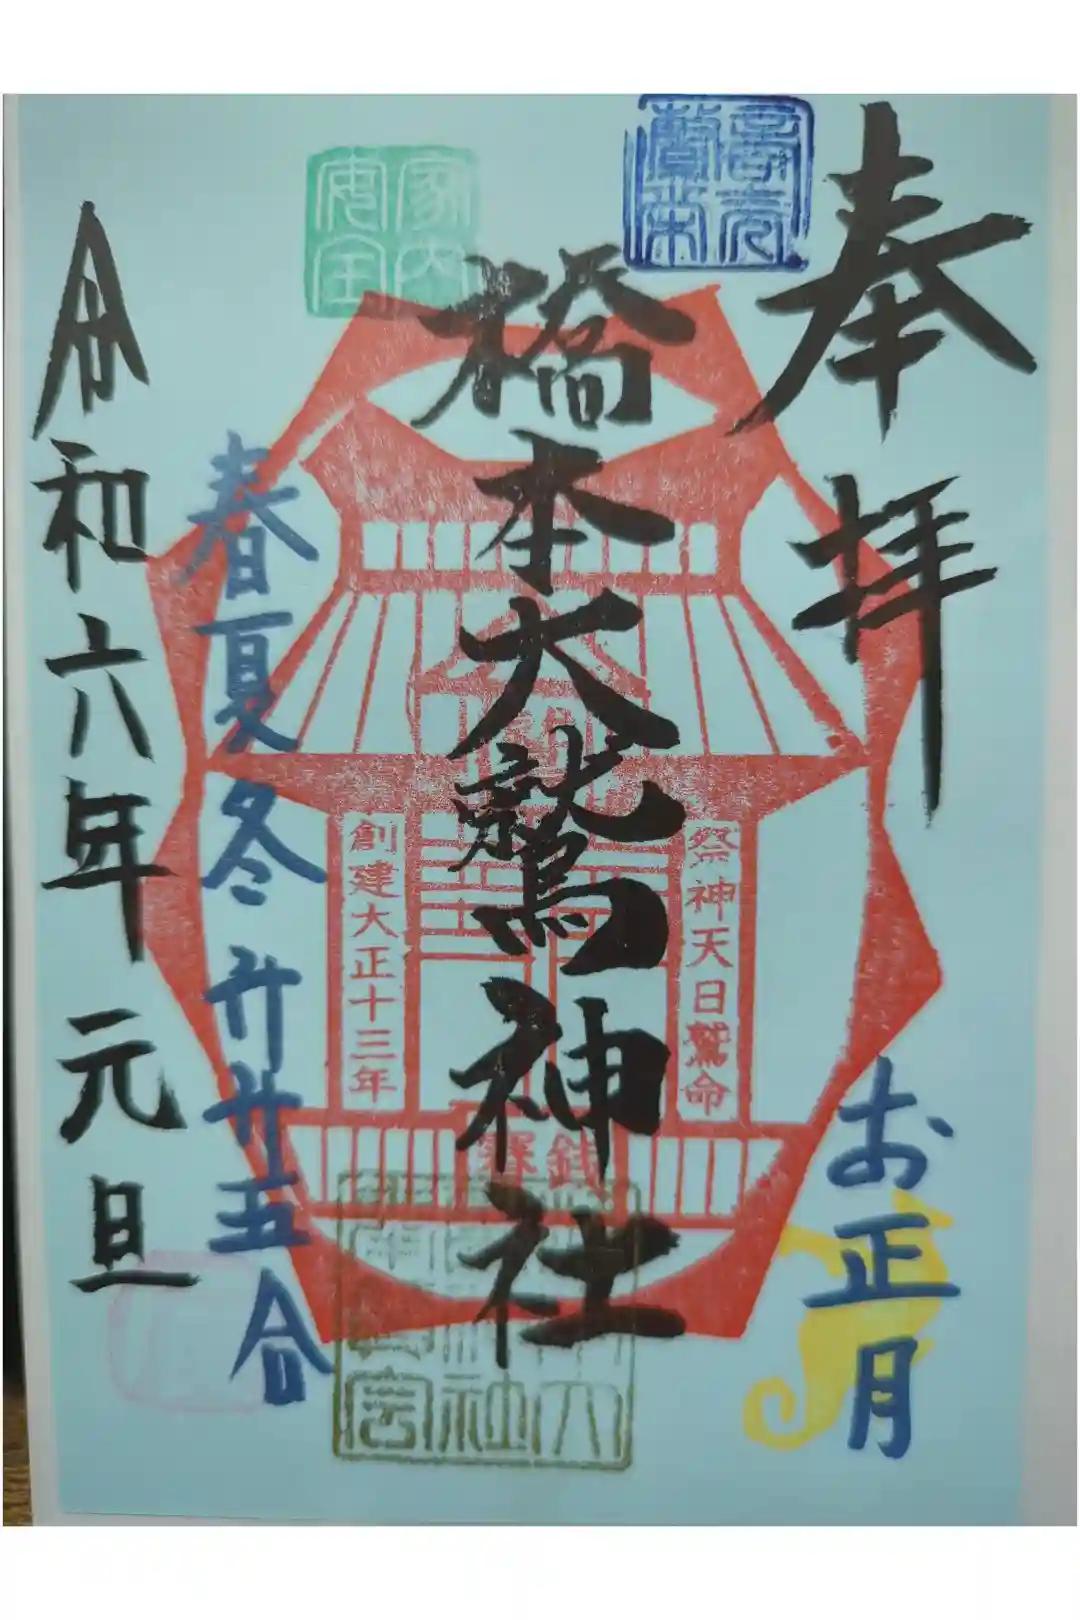 奉拝
お正月
橋本大鷲神社
祭神天日鷲命
創建大正十三年
賽銭
家内
安全
春夏冬 廾廾五合
令和六年 元旦